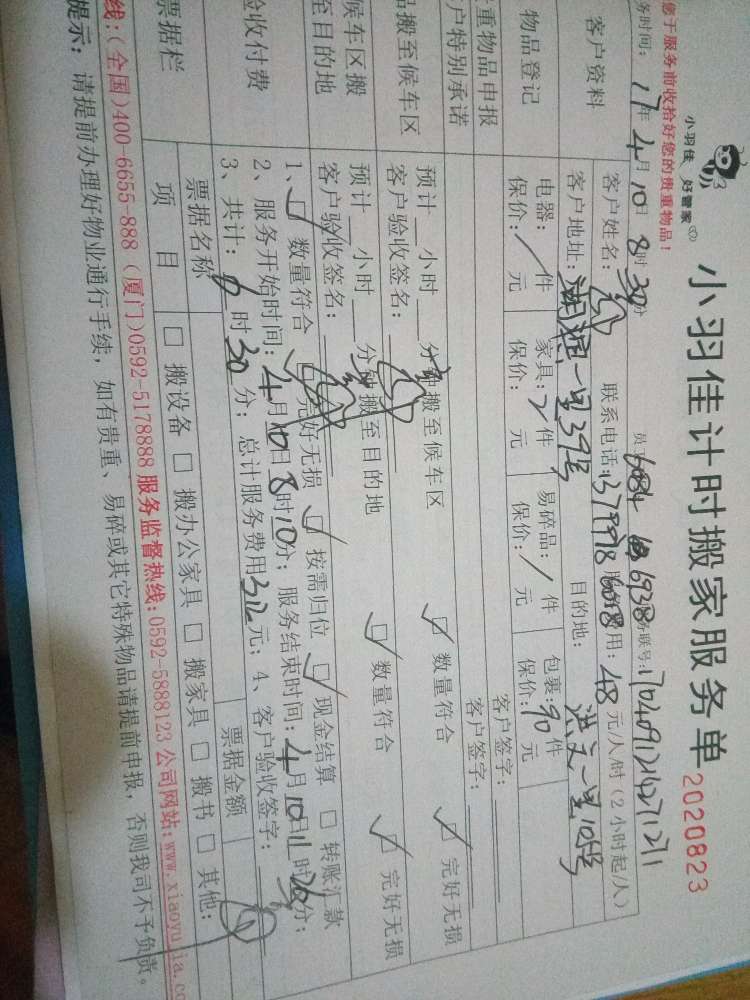 小羽佳 好管家
小羽佳计时搬家服务单 2020823
您于服务前收拾好您的贵重物品！
务时间：17年4月10日8时30分
客户资料
客户姓名： 联系电话： 用：48元/人/时（2小时起/人）
客户地址：湖滨一里39号 目的地：洪文一里10号
物品登记
电器：/件 家具：件 易碎品：/件 包裹：90件
保价：元 保价：元 保价：元 保价：元
重物品申报 客户签字：
户特别承诺 客户签字：
品搬至候车区
预计__小时__分钟搬至候车区 数量符合 完好无损
客户验收签名：
候车区搬至目的地
预计__小时__分钟搬至目的地 数量符合 完好无损
客户验收签名：
验收付费
1、 数量符合 完好无损 按需归位 现金结算 转账汇款
2、服务开始时间：4月10日8时10分；服务结束时间：4月10日11时20分；
3、共计：时30分；总计服务费用312元；4、客户验收签字：
票据栏
票据名称 票据金额
项目 搬设备 搬办公家具 搬家具 搬书 其他：
线：（全国）400-6655-888（厦门）0592-5178888 服务监督热线：0592-5888123 公司网站：www.xiaoyujia.co
提示：请提前办理好物业通行手续，如有贵重、易碎或其它特殊物品请提前申报，否则我司不予负责。